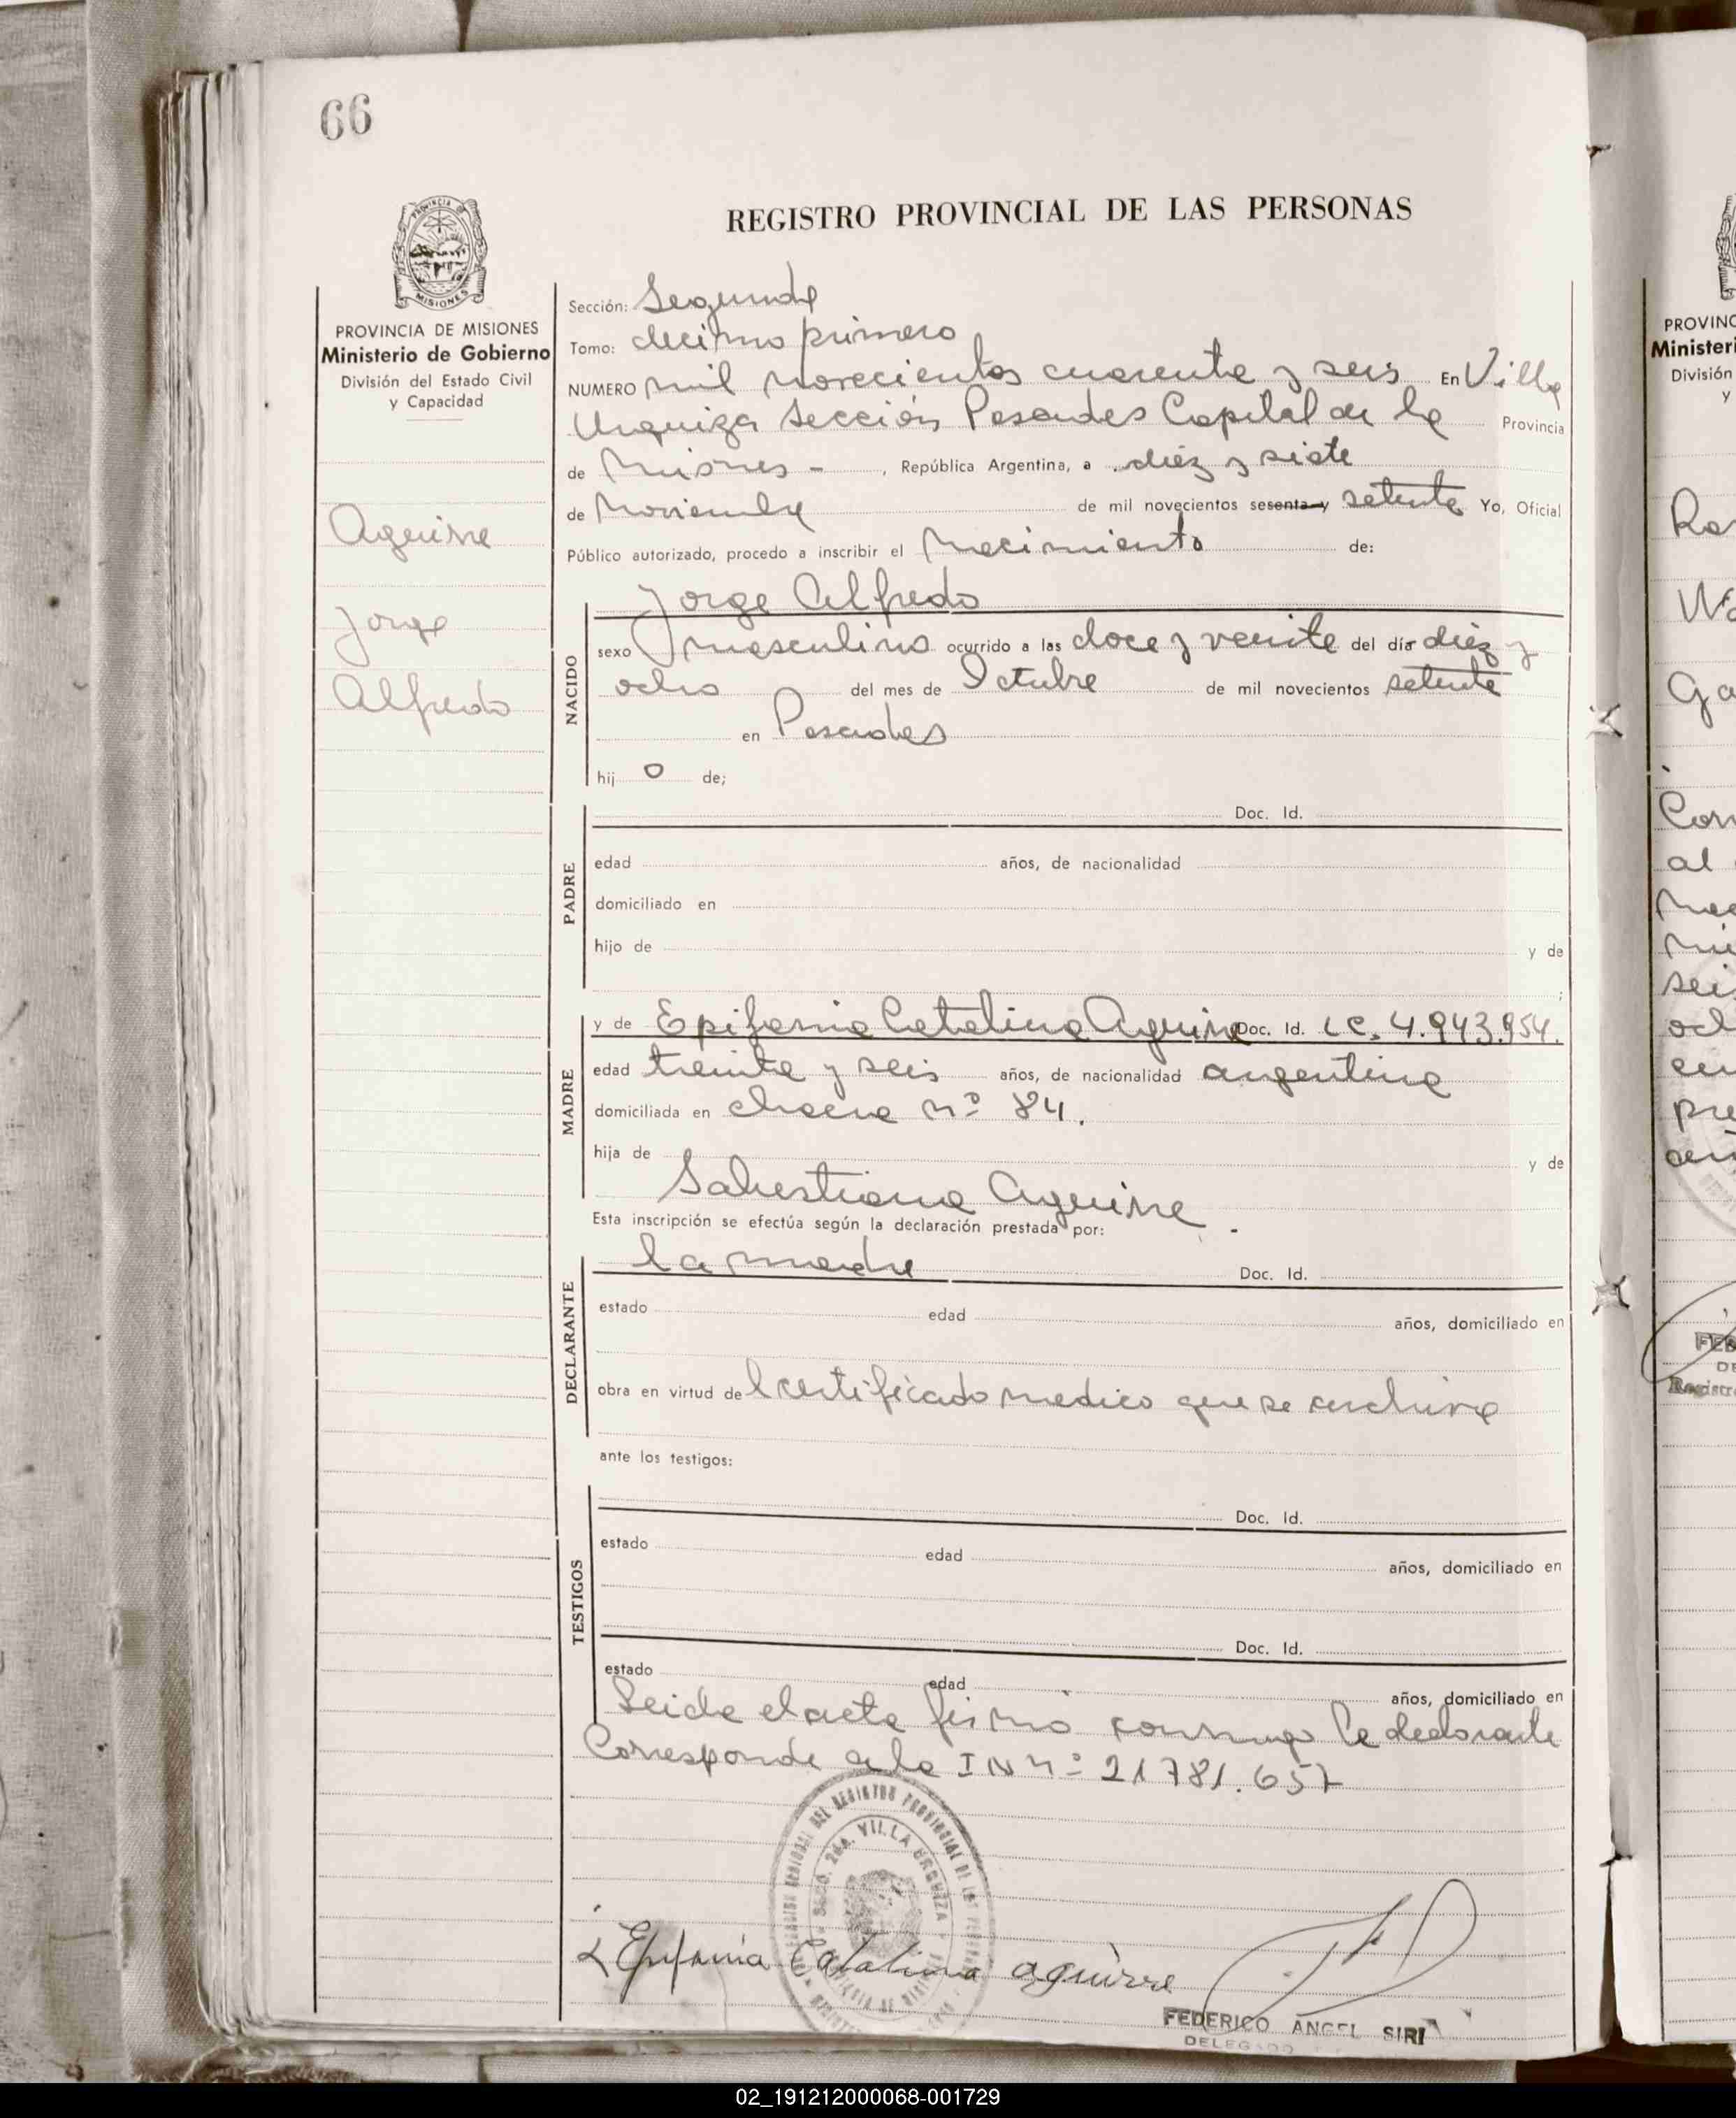 66
REGISTRO PROVINCIAL DE LAS PERSONAS
PROVINCIA DE MISIONES
Ministerio de Gobierno
División del Estado Civil
y Capacidad
Aguirre
Jorge
Alfredo
Sección: Segunda
Tomo: decimo primero
NUMERO mil novecientos cuarenta y seis En Villa
Urquiza Sección Posadas Capital de la Provincia
de Misiones - , República Argentina, a diez y siete
de Noviembre de mil novecientos sesenta y setenta Yo, Oficial
Público autorizado, procedo a inscribir el Nacimiento de:
Jorge Alfredo
NACIDO
sexo masculino ocurrido a las doce y veinte del día diez y
ocho del mes de Octubre de mil novecientos setenta
en Posadas
hij o de;
PADRE
Doc. Id.
edad años, de nacionalidad
domiciliado en
hijo de y de
;
MADRE
y de Epifania Catalina Aguirre Doc. Id. LC. 4.943.954.
edad treinta y seis años, de nacionalidad argentina
domiciliada en chacra nº 84.
hija de y de
Aguirre.
Esta inscripción se efectúa según la declaración prestada por:
DECLARANTE
la madre Doc. Id.
estado edad años, domiciliado en
obra en virtud del certificado medico que se archiva
ante los testigos:
TESTIGOS
Doc. Id.
estado edad años, domiciliado en
Doc. Id.
estado edad años, domiciliado en
Leida el acta firmó conmigo la declarante
Corresponde a la IN nº 21781.657
VILLA URQUIZA
Epifania Catalina aguirre
FEDERICO ANGEL SIRI
DELEGADO
PROVINC
Ministeri
División
y
02_191212000068-001729